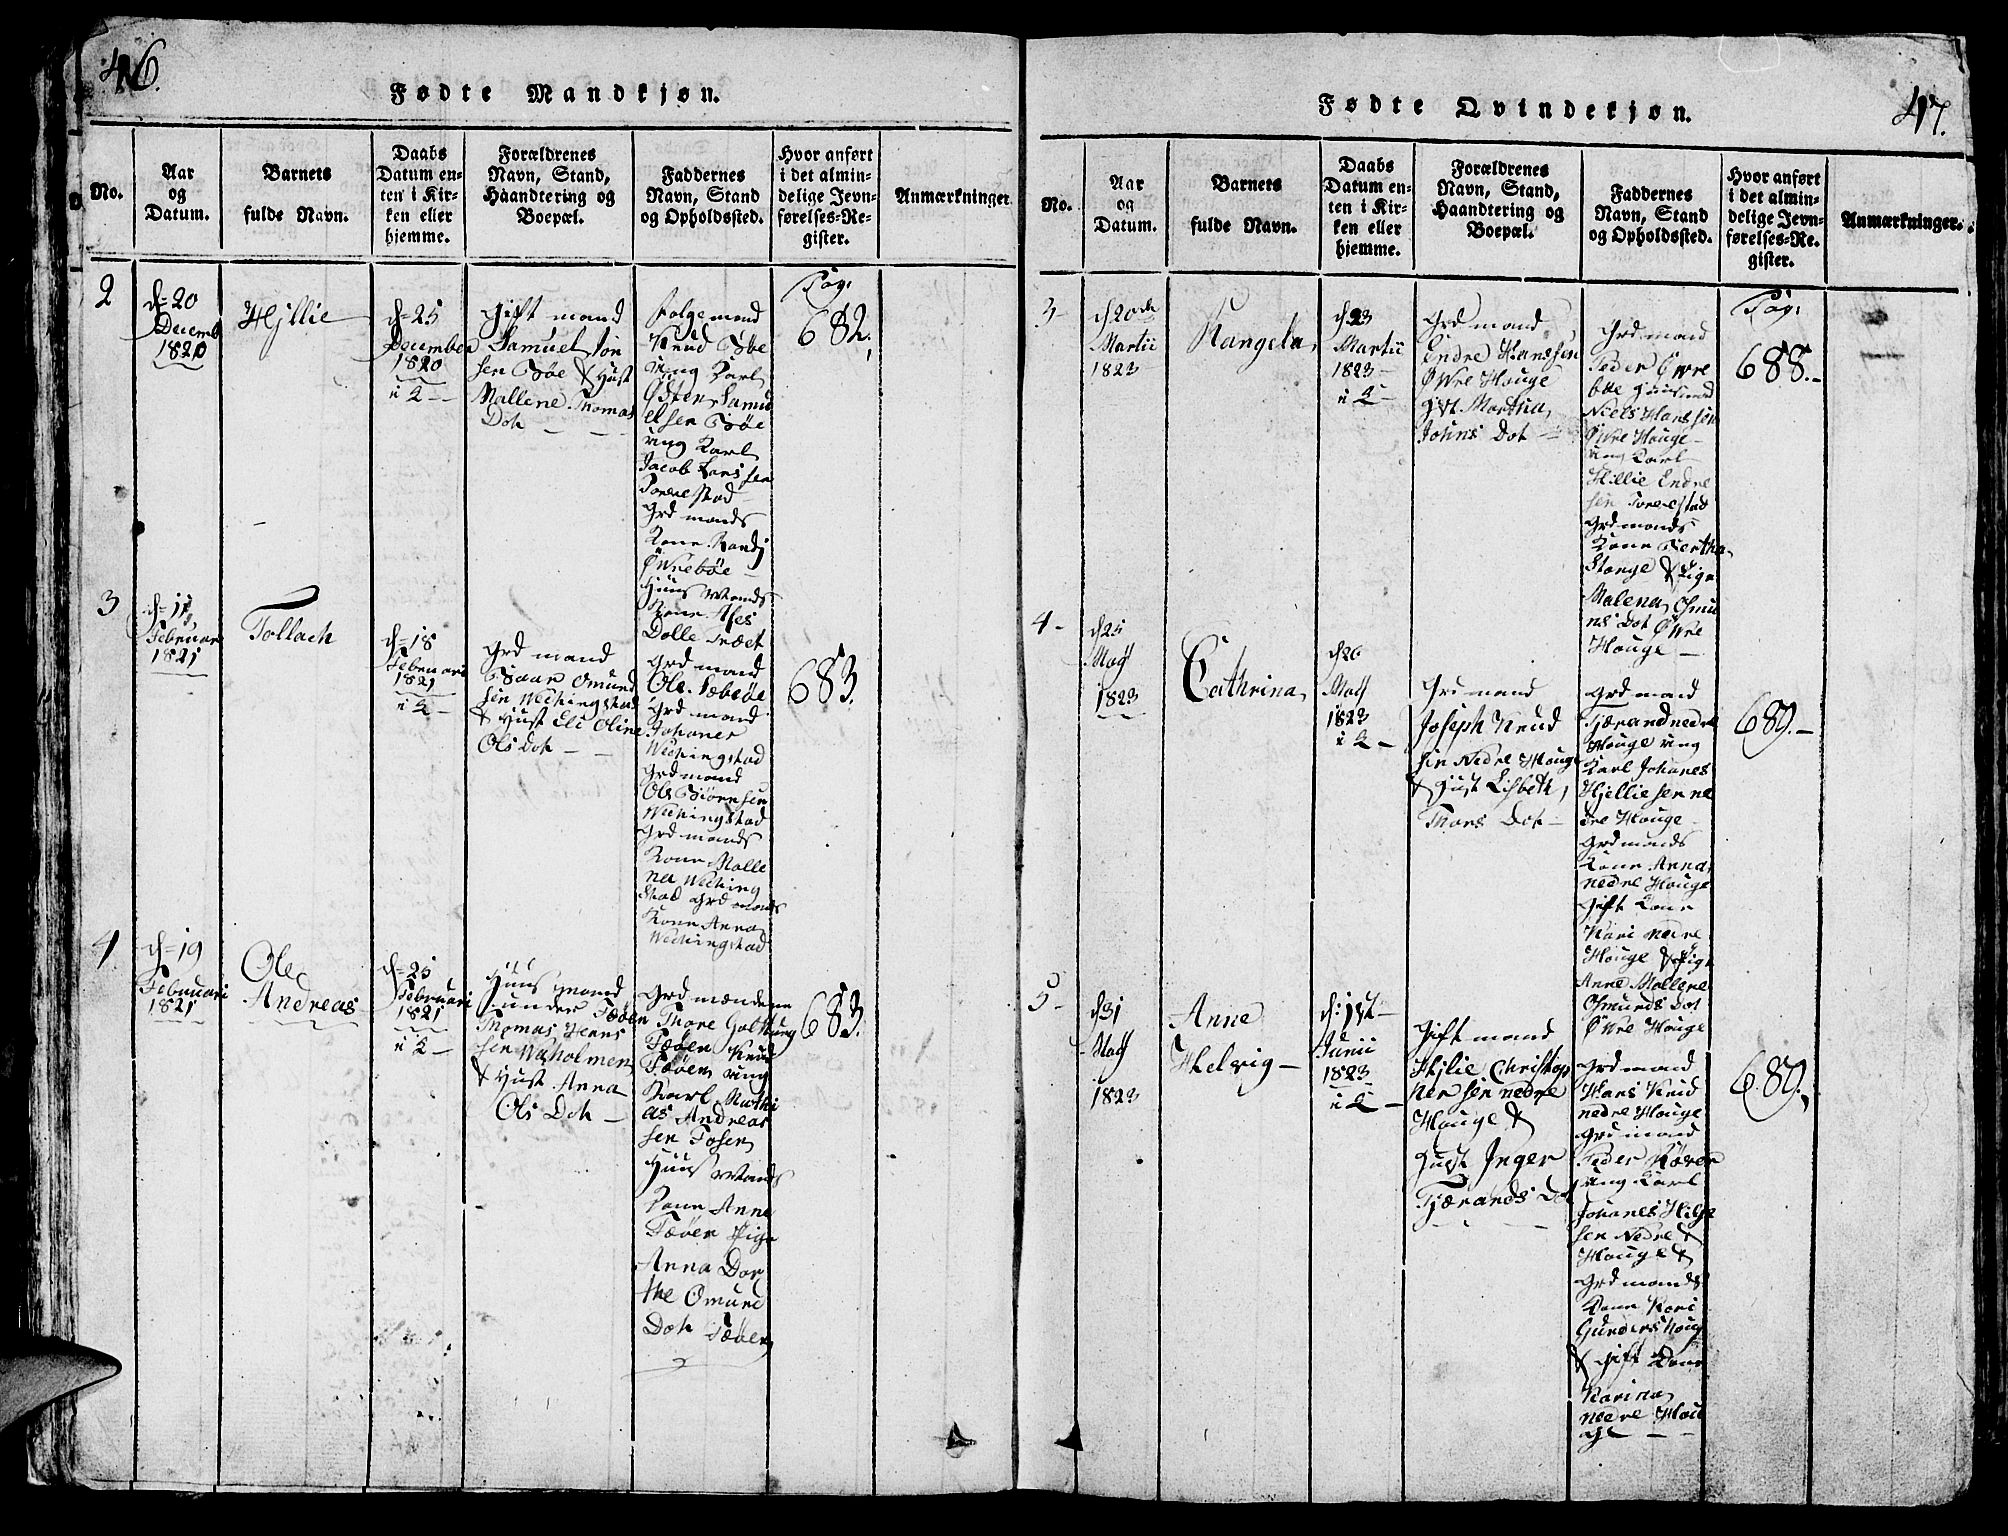 46.
Fødte Mandkjøn.
No.
Aar
og
Datum.
Barnets
fulde Navn.
Daabs
Datum en-
ten i Kir-
ken eller
hjemme.
Forældrenes
Navn, Stand,
Haandtering og
Boepæl.
Faddernes
Navn, Stand
og Opholdssted.
Hvor anført
i det almin-
delige Jevn-
førelses-Re-
gister.
Anmærkninger
2
d= 20
Decemb
1820
Hjllie
d= 25
December
1820
i K –
gift mand
Samuel Jon
sen Bøe & Hust
Mallene Thomas
Dot – – –
Knud Bøe
ung Karl
Østen Samu
elsen Bøe
ung Karl
Jacob Larssen
Grdmands
Kone Randj
Øwrebøe –
Huus Mands
Kone
Dolle Træet
Pag:
682.
3
d= 11
Februar
1821
Tollach
d= 18
Februari
1821
i K –
Grdmand
Baar Omund
sen Wechingstad
& Hust Eli Oline
Ols Dot – –
Grdmand
Ole Sæbøe
Grdmand
Johanes
Wechingstad
Grdmand
Ole Biørnsen
Wechingstad
Grdmands
Kone Malle
na Weching
stad Grdmands
Kone Anna
Wechingstad
683.
4
d= 19
Februari
1821
Ole
Andreas
d= 25
Februari
1821
i K –
Huusmand
under Fæøen
Thomas Hans
sen Waholmen
& Hust Anna
Ols Dot –
Grdmændene
Thore
Fæøen Knud
Fæøen ung
Karl Mathi
as Andreas
sen Fosen
Huus Mands
Kone Anne
Fæøen Pige
Anna Dor
the Omund
Dot Fæøen
683.
47.
Fødte Qvindekjøn.
No.
Aar
og
Datum.
Barnets
fulde Navn.
Daabs
Datum en-
ten i Kir-
ken eller
hjemme.
Forældrenes
Navn, Stand,
Haandtering og
Boepæl.
Faddernes
Navn, Stand
og Opholdssted.
Hvor anført
i det almin-
delige Jevn-
førelses-Re-
gister.
Anmærkninger.
3–
d20de
Martii
1823
Rangela
d23
Martii
1823
i K –
Grdmand
Endre Hanssen
Øwre Houge
Hust Martha
Johns Dot –
Grdmand
Peder Øwre
bøe Huusmand
Niels Hanssen
Øwre Houge –
ung Karl
Hillie Endre
sen
Grdmands
Kone Bertha
Stange & Pige
Malena Osmu
nds Dot Øwre
Houge –
Pag:
688.–
4–
d25
Maij
1823
Cathrina
d26
Maij
1823
i K –
Grdmand
Joseph Knud
sen Nedre Houge
& Hust Lisbeth
Thors Dot –
Grdmand
Tjærand nedre
Houge ung
Karl Johanes
Hjelliesen ne
dre Houge –
Grdmands
Kone Anna
nedre Houge
Gift Kone
Kari nedre
Houge & Pige
Anne Mallene
Osmunds Dot
Øwre Houge
689.–
5–
d31
Maij
1823
Anne
Helvig –
d: 1st–
Junii
1823
i K –
Gift mand
Hjlie Christop
hersen nedre
Houge &
Hust Inger
Tjærands Dot
Grdmand
Hans Knud
nedre Houge
Grdmand
Peder
ung Karl
Johanes Hilje
sen Nedre
Houge &
Grdmands
Kone Kari
Gunders Houg
& Gift Kone
Karina
nedre Hou
ge – –
689.